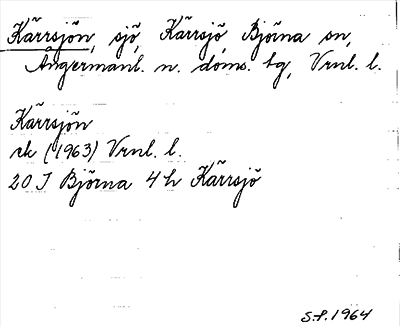 Kärrsjön, sjö, Kärrsjö, Björna sn,
Ångermanl. n. doms. tg, Vrnl. l.
Kärrsjön
rk (1963) Vrnl. l.
20 J Björna 4 h Kärrsjö
S.P. 1964